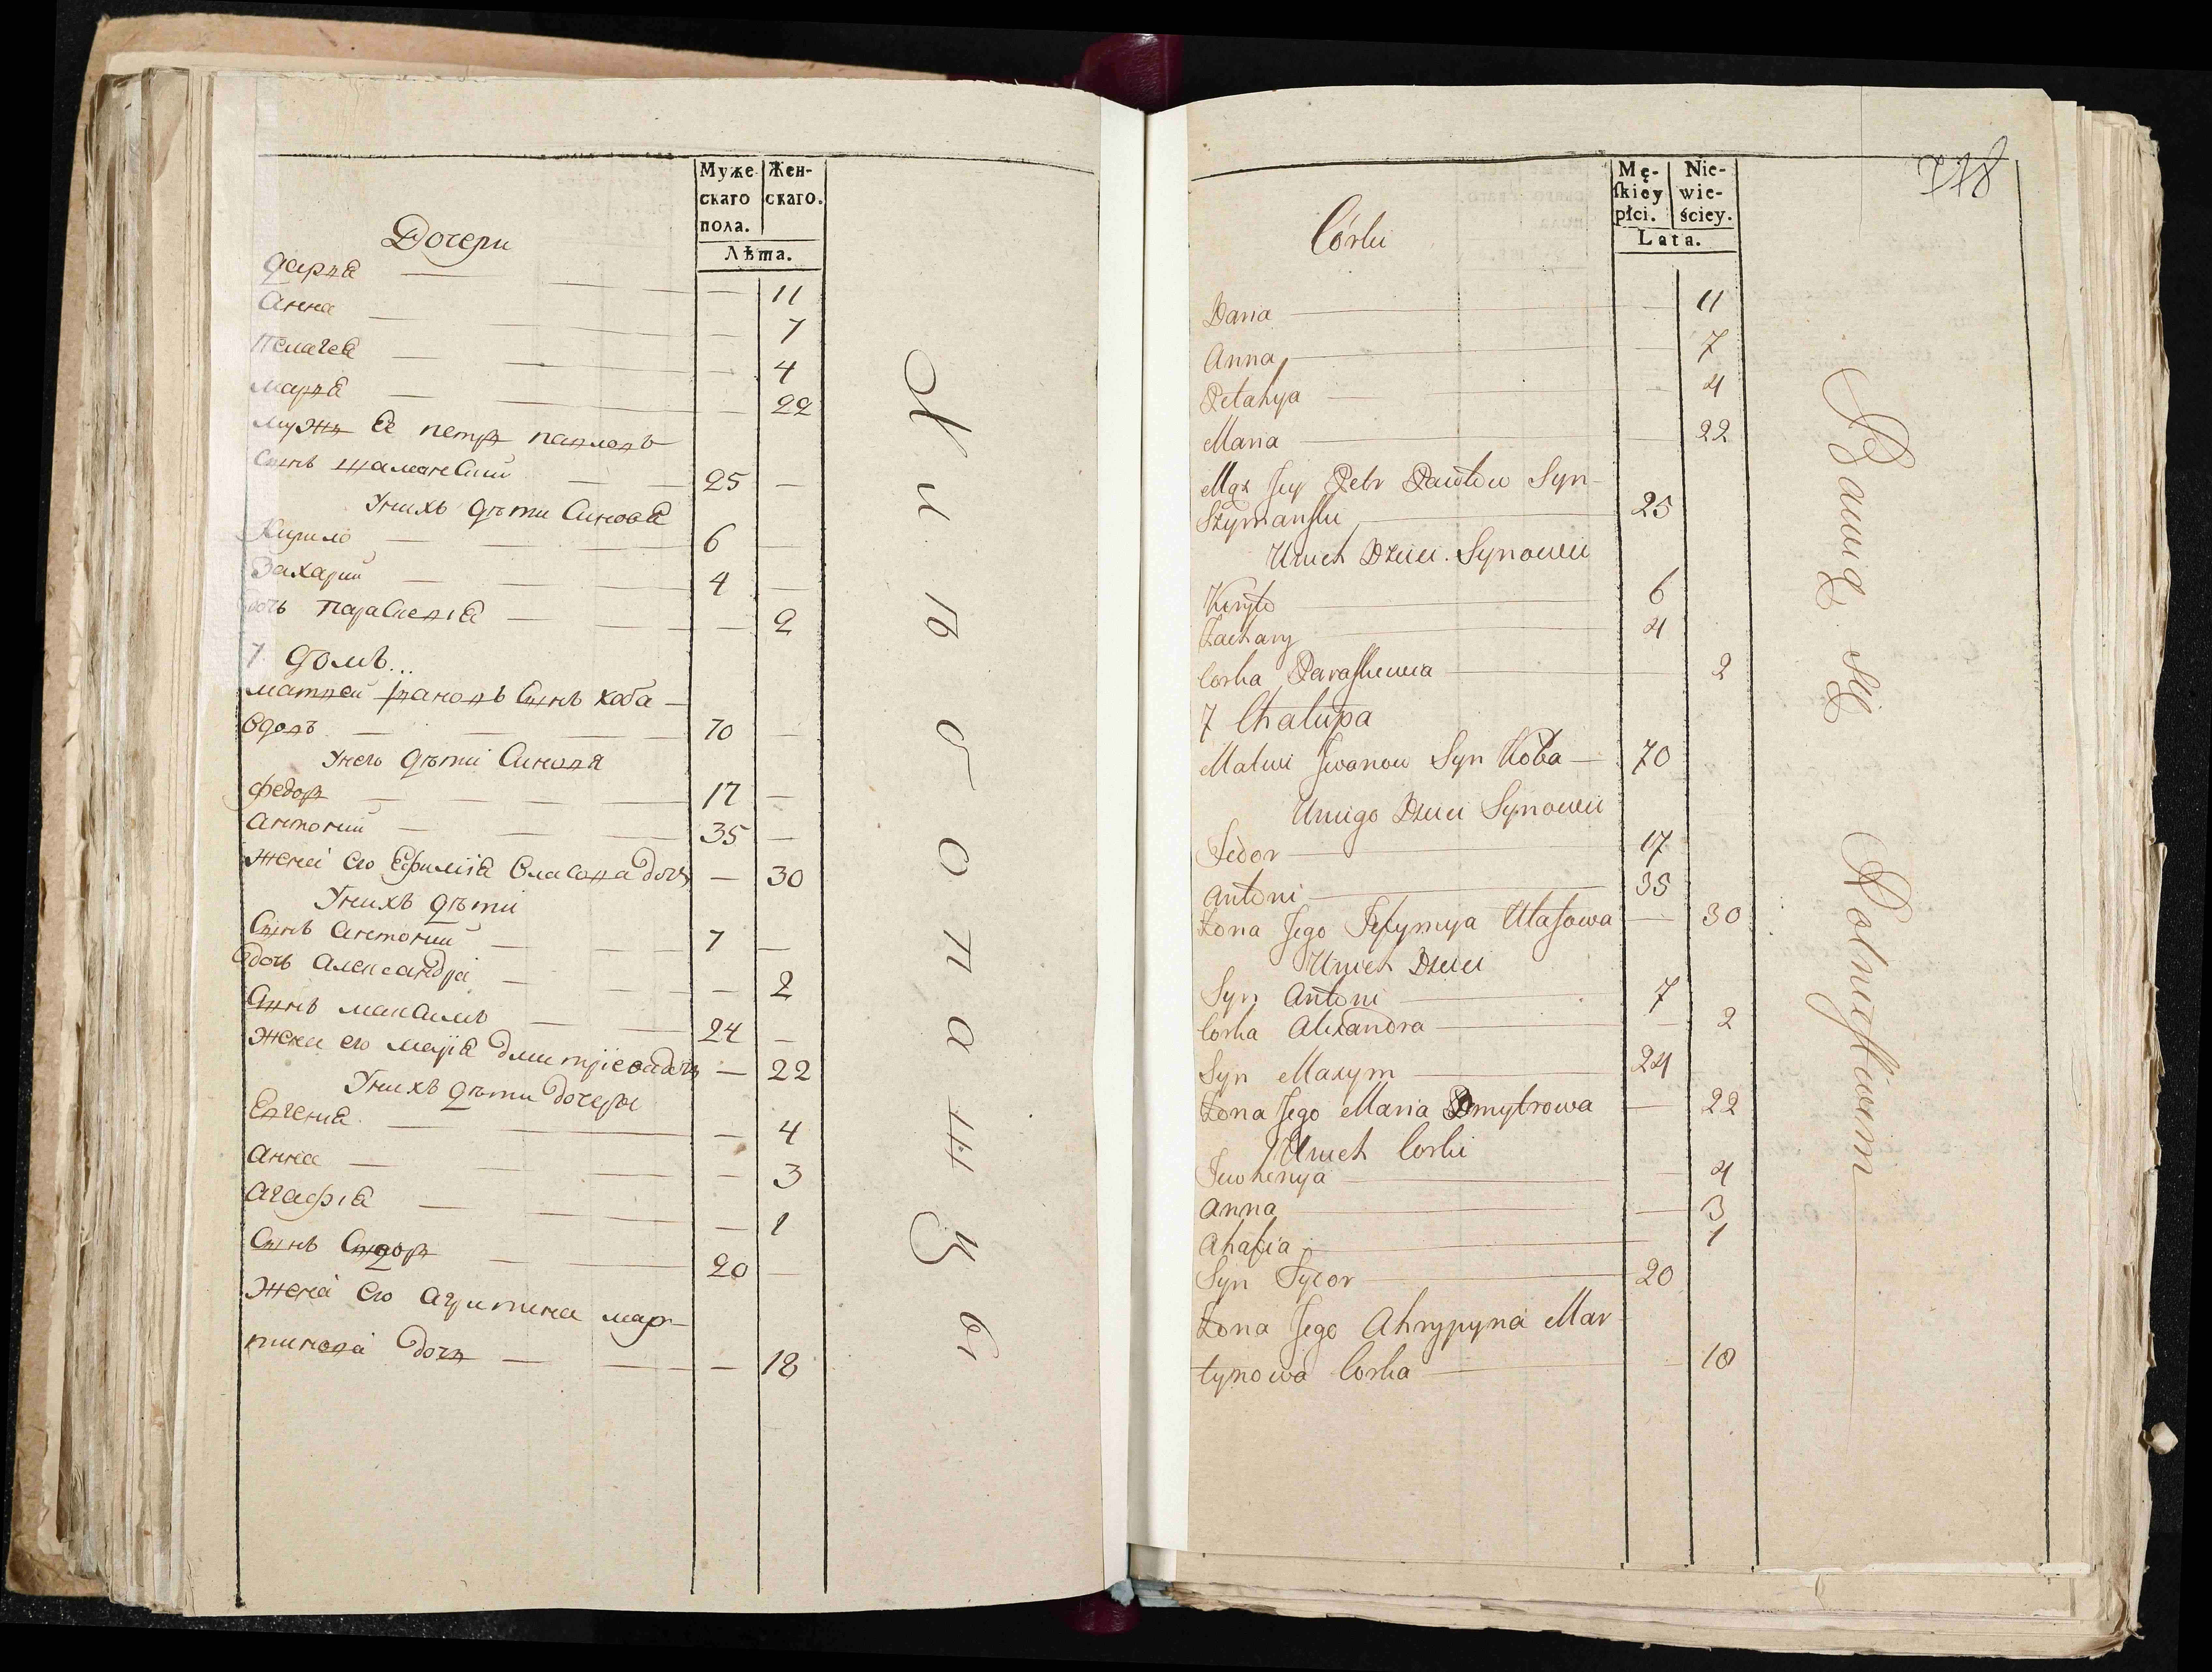 Муже Жен-
скаго скаго.
пола.
Лѣта.
Дочери
дарья 11
Анна 7
Пелагея 4
марья 22
мужъ Ея петръ павловъ
Сынъ шаманский 25
Унихъ дѣти Синовя
Кирило 6
Захарий 4
дочь Параскевія 2
7 домъ...
матвей ивановъ Сынъ коба
вдовъ 70
Унего дѣти Синовя
федоръ 17
антоний 35
жена его Ефимія Власова дочь 30
Унихъ дѣти
Сынъ антоний 7
дочь александра 2
Сынъ максимъ 24
жена его марія дмитріева дочь 22
Унихъ дѣти дочеры
Евгения 4
анна 3
агафія 1
Сынъ Сидоръ 20
жена его агрипина мар-
тинова дочь 18
Хлібопашцы
Mę- Nie-
ſkiey wie-
płci. ściey.
Lata.
718
Córki
Daria 11
Anna 7
Pelahya 4
Maria 22
Mąż Jey Petr Pawłow Syn
Szymanſki 25
Unich Dzieci Synowie
Kiryło 6
Zachary 4
Corka Paraſkiewia 2
7 Chałupa
Matwi Jwanow Syn Koba 70
Uniego Dzieci Synowie
Fedor 17
Antoni 35
Zona Jego Jefymija Ułaſowa 30
Unich Dzieci
Syn Antoni 7
Corka Alexandra 2
Syn Maxym 24
Zona Jego Maria Dmytrowa 22
Unich Corki
Jewhenya 4
Anna 3
Ahafia 1
Syn Sydor 20
Zona Jego Ahrypyna Mar
tynowa Corka 18
Bawią się Rolnictwem